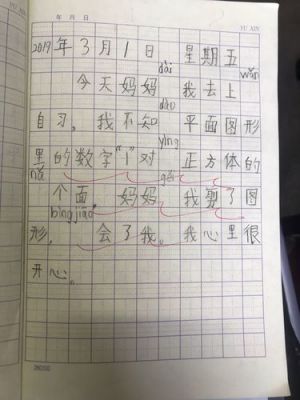 年 月 日 YU XIN
2019年3月1日 星期五
今天妈妈dài我去上wǎn
自习,我不知dào平面图形
里的数字“1”对yìng正方体的
nǎ个面。妈妈gěi我剪了图
形,bìng jiāo会了我。我心里很
开心。